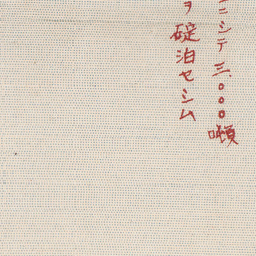 ニシテ三、〇〇〇噸
ヲ碇泊セシム